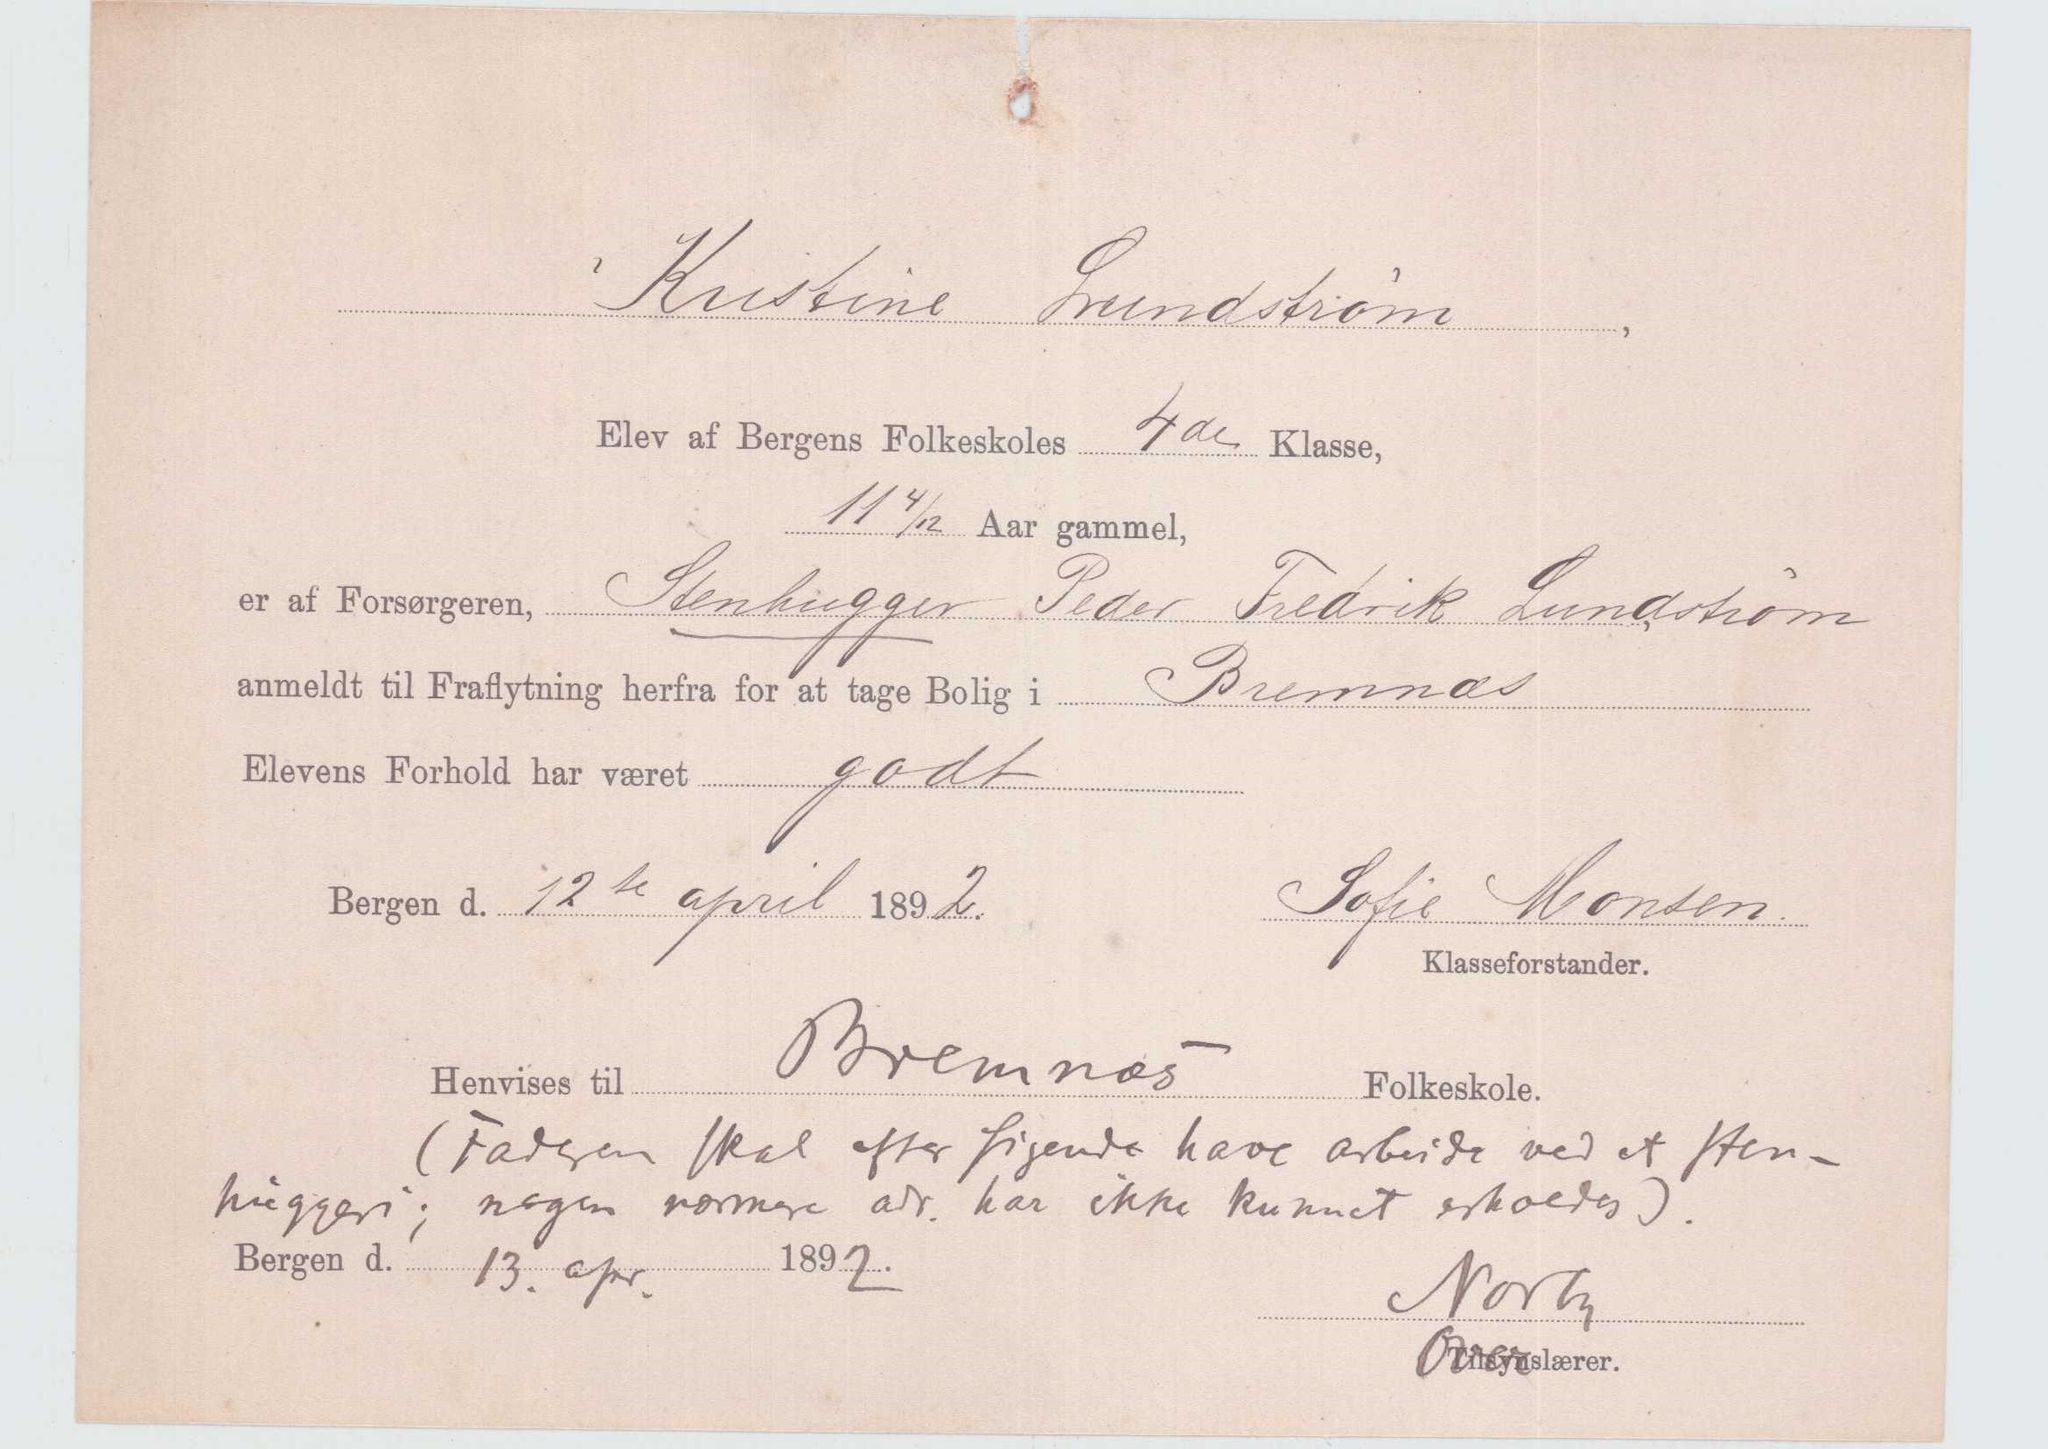 Kristine Lundstrøm,
Elev af Bergens Folkeskoles 4de Klasse,
11 4/12 Aar gammel,
er af Forsørgeren, Stenhugger Peder Fredrik Lundstrøm
anmeldt til Fraflytning herfra for at tage Bolig i Bremnæs
Elevens Forhold har været godt
Bergen d. 12te april 1892. Sofie Monsen.
Klasseforstander.
Henvises til Bremnæs Folkeskole.
(Faderen skal efter sigende have arbeide ved et sten-
huggeri; nogen nærmere adr. har ikke kunnet erholdes).
Bergen d. 13. apr. 1892.
Norby
Overlærer.